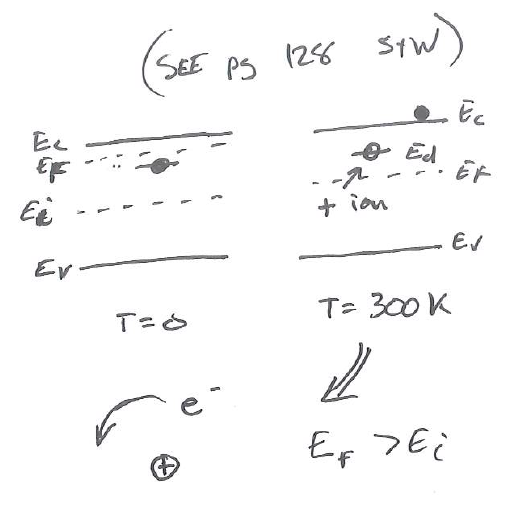 (SEE PG 128 S+W)
Ec
EF
Ei
Ev
T=0
Ec
Ed
EF
+ ion
Ev
T= 300K
e-
+
EF >Ei